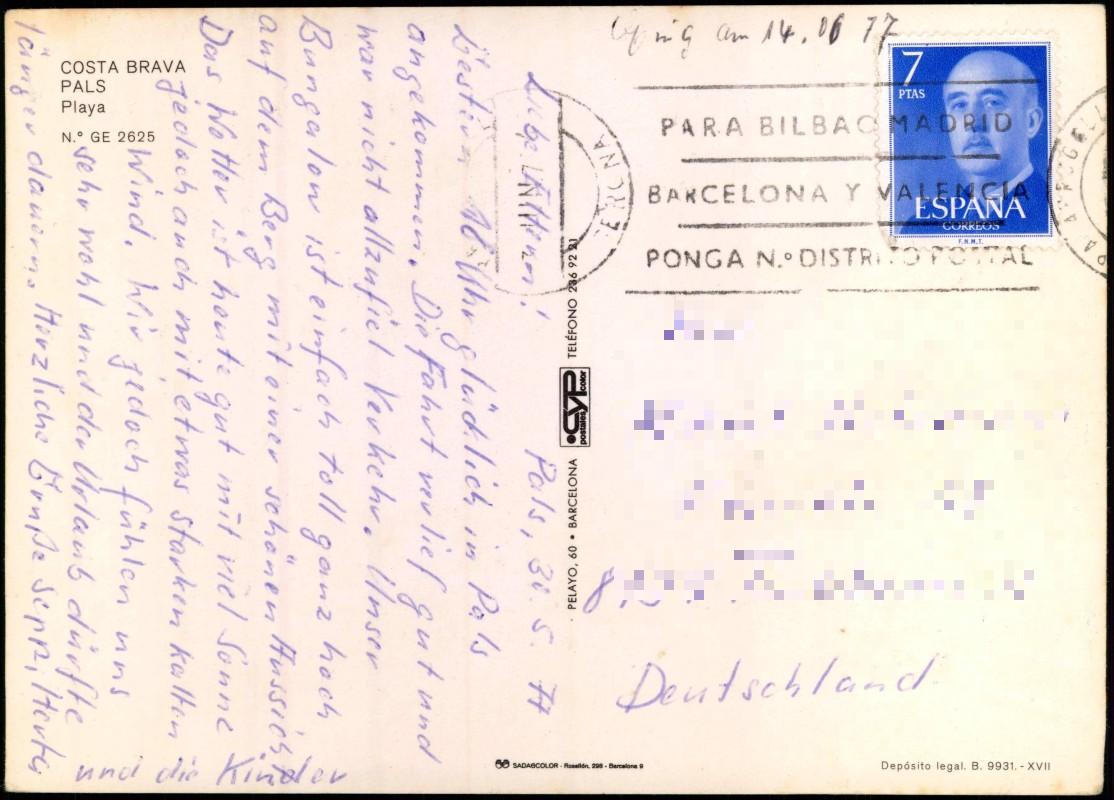 COSTA BRAVA
PALS
Playa
N.º GE 2625
ging am 14.06 77
7
PTAS
ESPAÑA
CORREOS
F.N.M.T.
PARA BILBAO MADRID
BARCELONA Y VALENCIA
PONGA N.º DISTRITO POSTAL
GERONA
Liebe Eltern! Pals, 30. 5. 77
Gestern Uhr glücklich in Pals
angekommen. Die Fahrt verlief gut und
war nicht allzufiel Verkehr. Unser
Bungalow ist einfach toll ganz hoch
auf dem Berg mit einer schönen Aussicht
Das Wetter ist heute gut mit viel Sonne
jedoch auch mit etwas starken kalten
Wind. Wir jedoch fühlen uns
sehr wohl und der Urlaub dürfte
länger dauern. Herzliche Grüße Sepp, Herta
und die Kinder
PELAYO, 60 • BARCELONA CYP postales color TELÉFONO 236 92 21
8
Deutschland
SADAGCOLOR - Rosellón, 298 - Barcelona 9
Depósito legal. B. 9931. - XVII